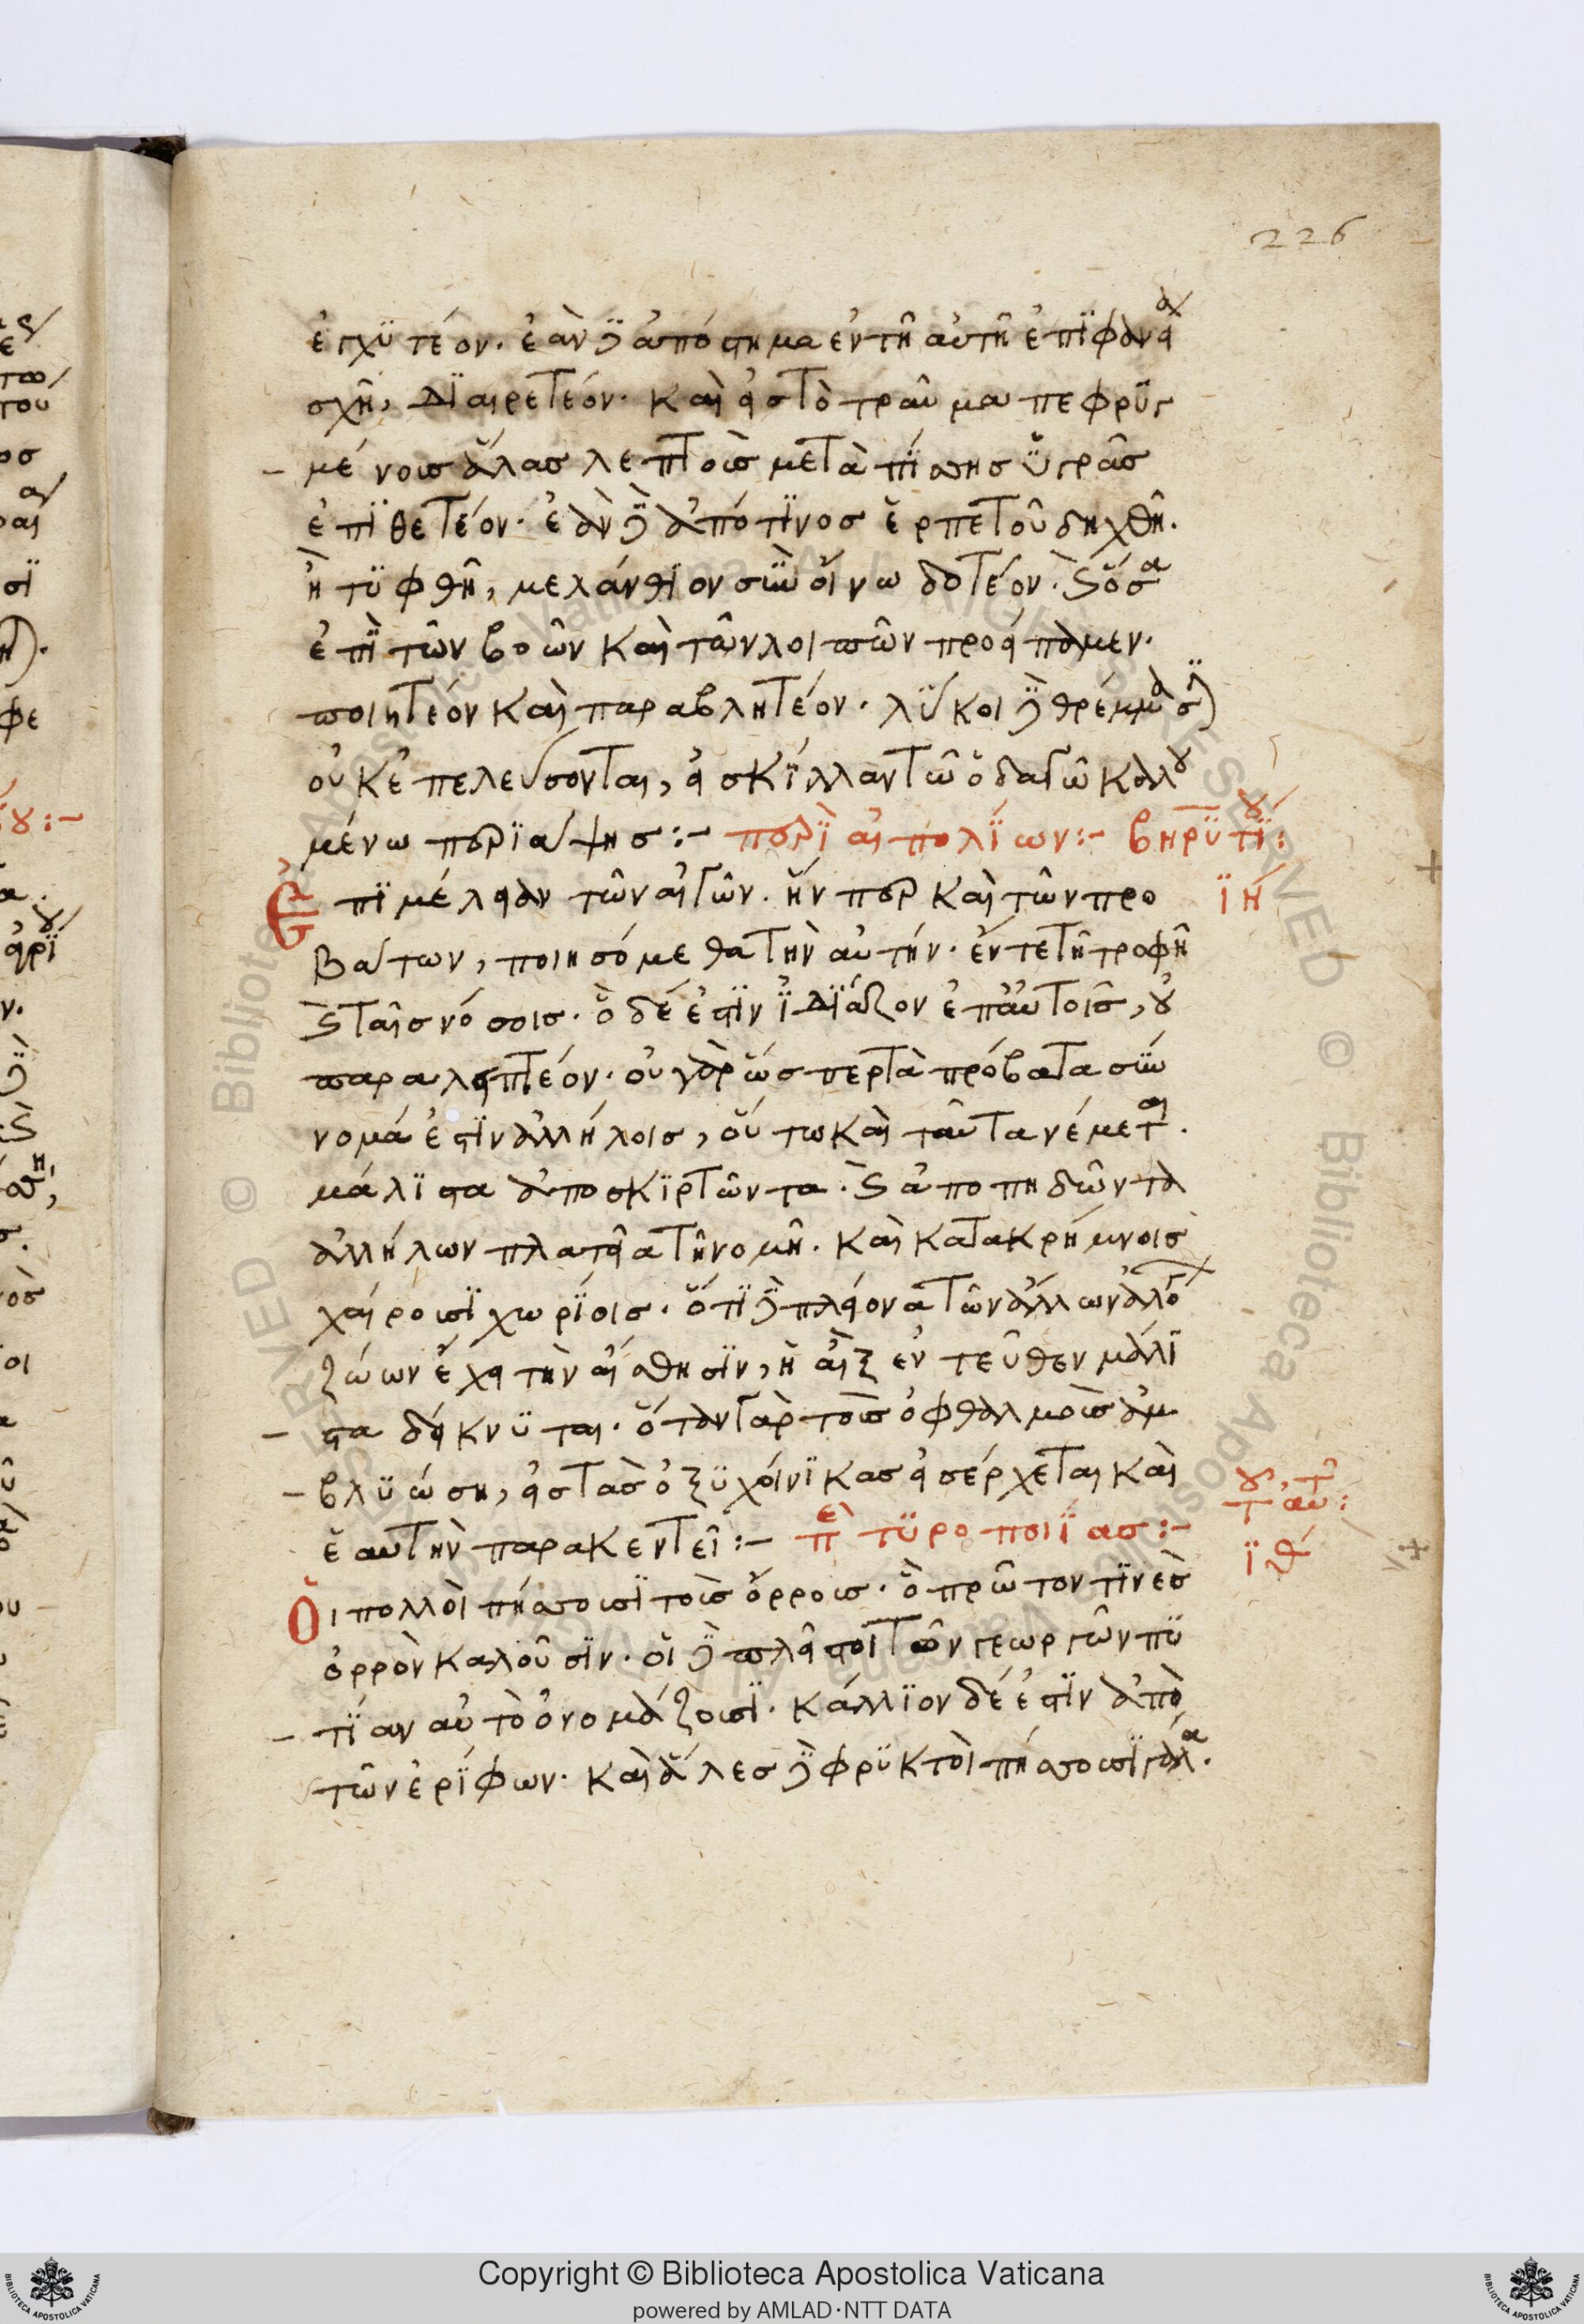 226
ἐγχϋτέον. ἐὰν δὲ ἀπόστημα ἐν τῆ αὐτῆ ἐπϊφανεία
σχῆ, διαιρετέον. καὶ εἰς τὸ τραῦμα πεφρϋγ
μένοις ἅλας λεπτοῖς μετὰ πίσσης ὑγρᾶς
ἐπϊθετέον. ἐὰν δὲ ἀπό τινος ἑρπετοῦ δηχθῆ.
ἢ τϋφθῆ, μελάνθϊον σὺν οἴνω δοτέον. καὶ ὅσα
ἐπὶ τῶν βοῶν καὶ τῶν λοιπῶν προείπαμεν.
ποιητέον καὶ παραβλητέον. λύκοι δὲ θρέμμασι
οὐκ ἐπελεύσονται, εἰ σκίλλαν τῶ ὁδαγῶ καλου
μένω περιάψης :- περὶ αἰπολίων :- βηρϋτίου :
Ἐπϊμέλειαν τῶν αἰγῶν. ἥν περ καὶ τῶν προ ϊή
βάτων, ποιησόμεθα τὴν αὐτήν. ἔν τε τῆ τροφῆ
καὶ ταῖς νόσοις. ὃ δέ ἐστιν ἰδιάζον ἐπ αὐτοῖς, οὐ
παραλειπτέον. οὐ γὰρ ὥσπερ τὰ πρόβατα σύν
νομά ἐστιν ἀλλήλοις, οὕτω καὶ ταῦτα νέμεται.
μάλϊστα ἀποσκϊρτῶντα. καὶ ἀποπηδῶντα
ἀλλήλων πλατεῖα τῆ νομῆ. καὶ κατακρήμνοις
χαίρουσϊ χωρίοις. ὅτϊ δὲ πλείονα τῶν ἄλλων ἀλόγων
ζώων ἔχει τὴν αἴσθησϊν, ἡ αἲξ ἐντεῦθεν μάλϊ
στα δείκνϋται. ὅταν γὰρ τοῖς ὀφθαλμοῖς ἀμ
βλϋώση, εἰς τὰς ὀξϋχοίνϊκας εἰσέρχεται καὶ
ἑαυτὴν παρακεντεῖ :- περὶ τϋροποιΐας :- τοῦ αὐτοῦ :
Οἱ πολλοὶ πήσσουσϊ τοῖς ὄρροις. ὃ πρῶτον τϊνὲς ϊθ
ὀρρὸν καλοῦσϊν. οἱ δὲ πλεῖστοι τῶν γεωργῶν πϋ
τίαν αὐτὸ ὀνομάζουσϊ. κάλλϊον δέ ἐστϊν ἀπὸ
τῶν ἐρίφων. καὶ ἅλες δὲ φρϋκτοὶ πήσσουσϊ γάλα.
Copyright © Biblioteca Apostolica Vaticana
powered by AMLAD·NTT DATA